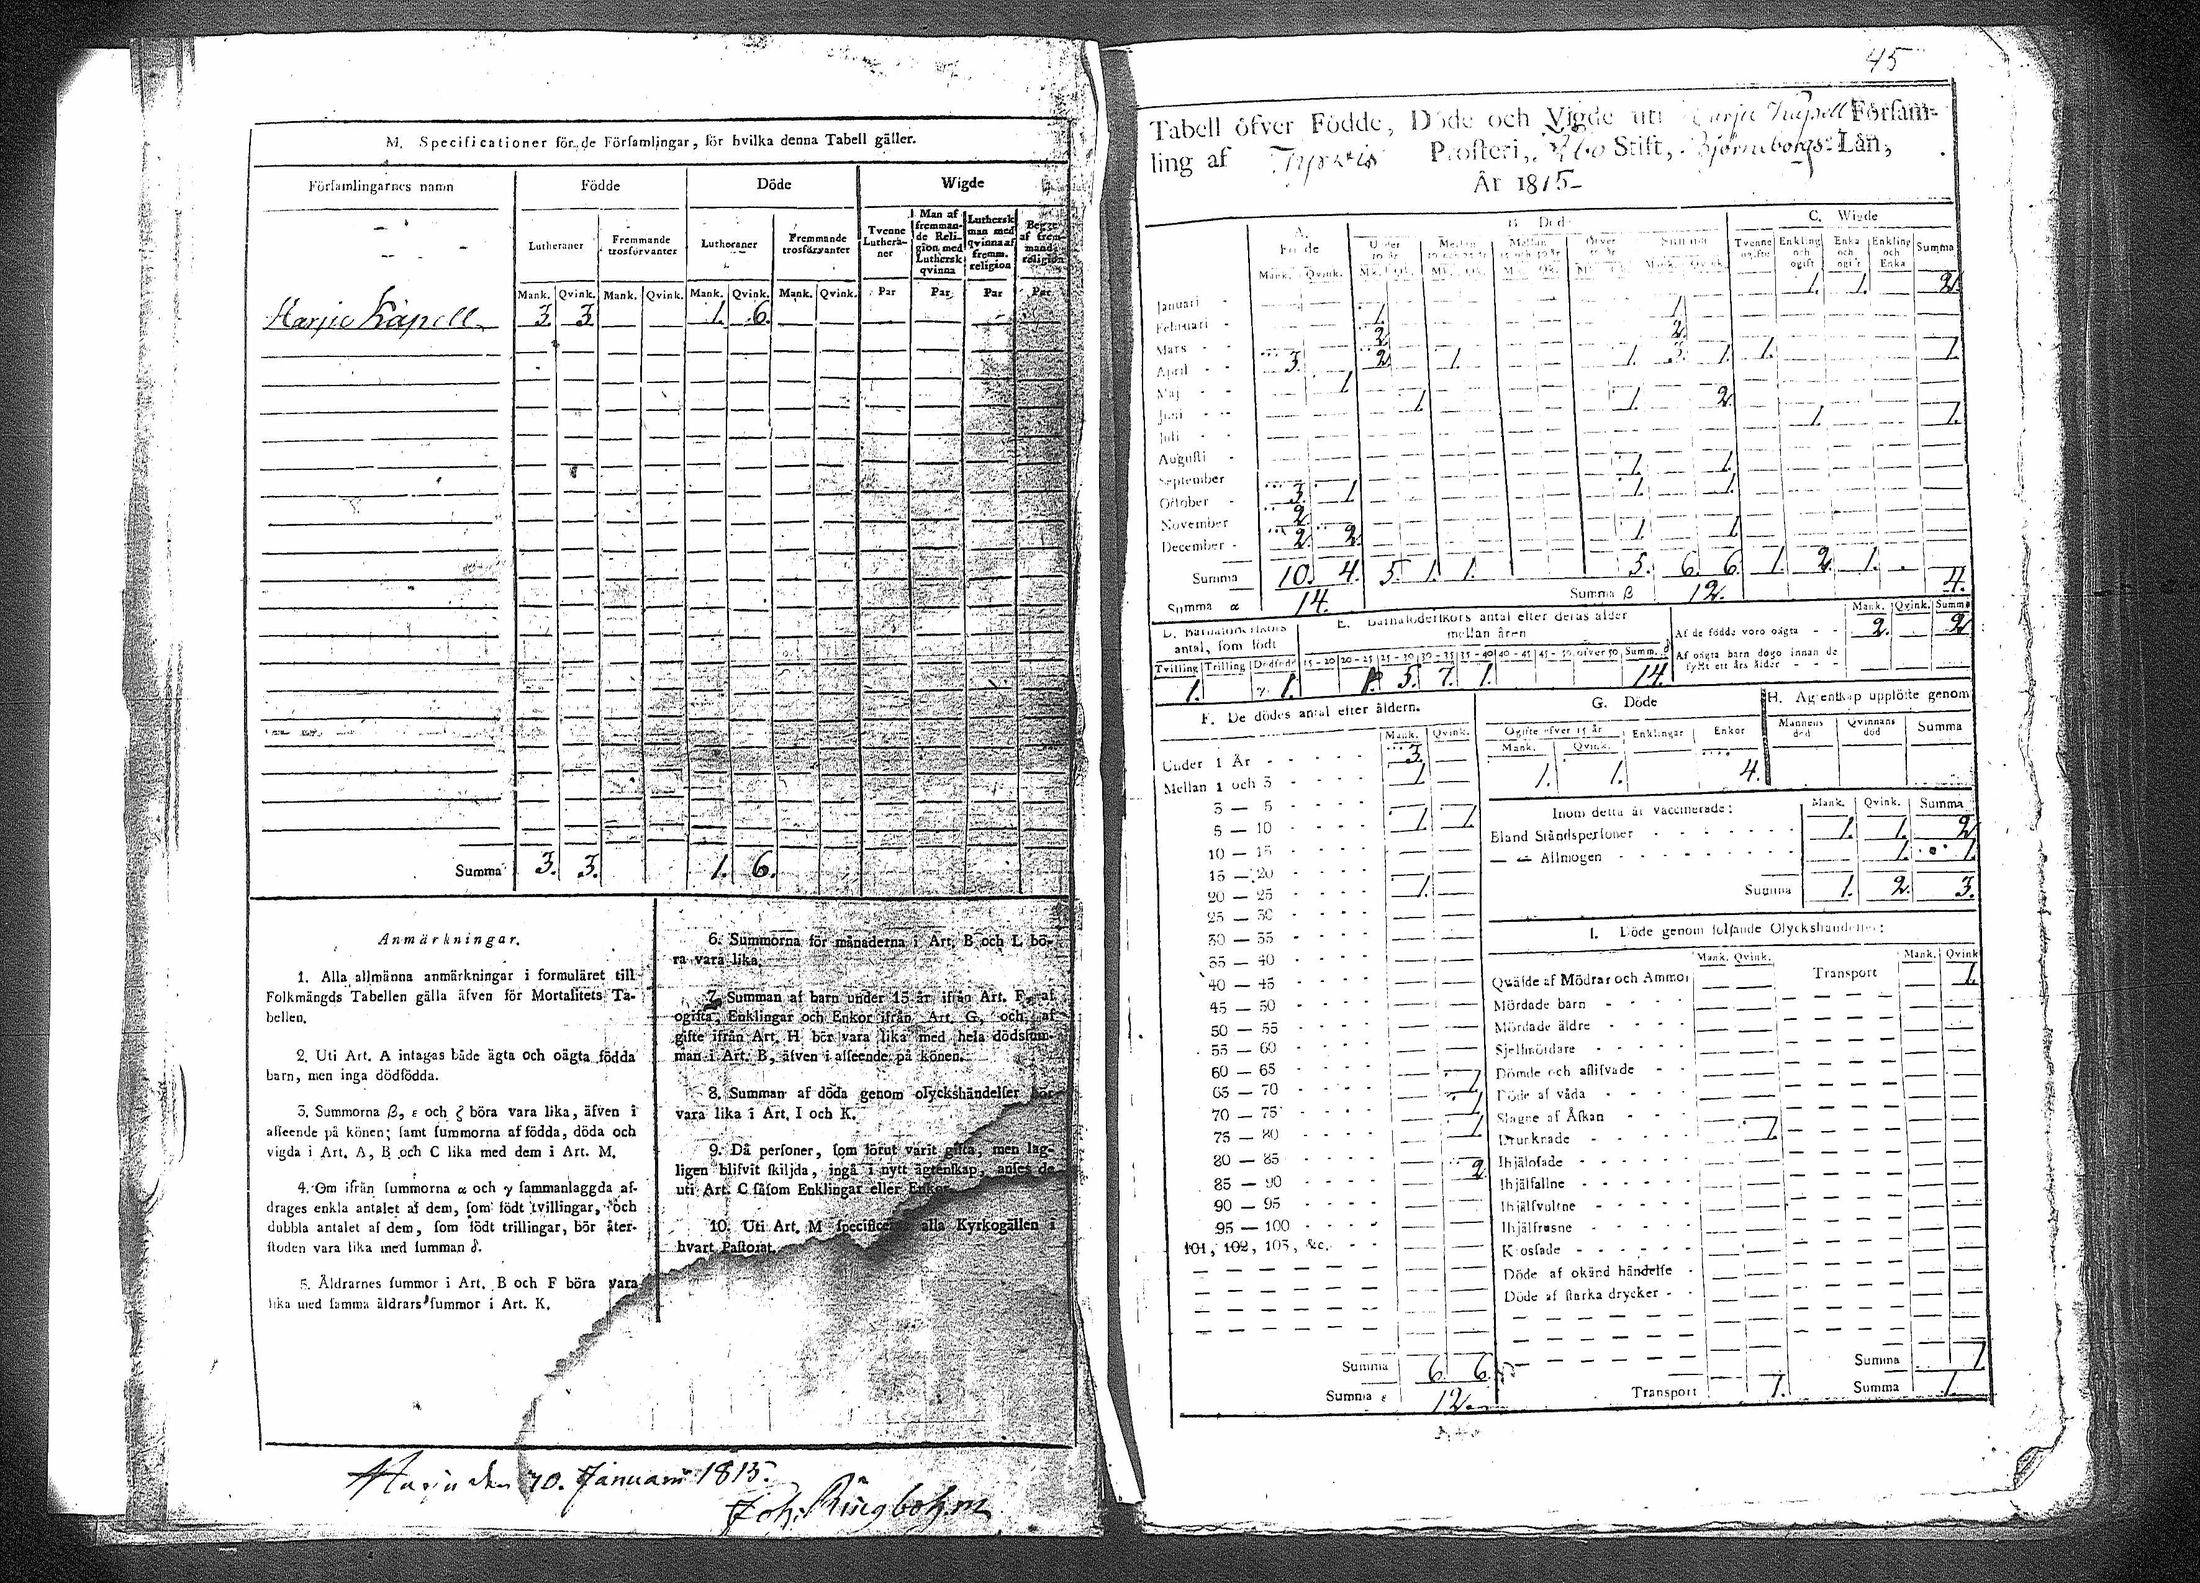 M. Specificationer för de Församlingar, för hvilka denna Tabell gäller.
Församlingarnes namn Födde Döde Wigde
Lutheraner Fremmande trosförvanter Lutheraner Fremmande trosförvanter Tvenne Lutheraner Man af fremmande Religion med Luthersk qvinna Luthersk man med qvinna af fremm. religion Begge af fremmande religion
Mank. Qvink. Mank. Qvink. Mank. Qvink. Mank. Qvink. Par Par Par Par
Harjie Kapell 3. 3. 1. 6.
Summa 3. 3. 1. 6.
Anmärkningar.
1. Alla allmänna anmärkningar i formuläret till
Folkmängds Tabellen gälla äfven för Mortalitets Ta-
bellen.
2. Uti Art. A intagas både ägta och oägta födda
barn, men inga dödfödda.
3. Summorna β, ε och ζ böra vara lika, äfven i
afseende på könen; samt summorna af födda, döda och
vigda i Art. A, B och C lika med dem i Art. M.
4. Om ifrån summorna α och γ sammanlaggda af-
drages enkla antalet af dem, som födt tvillingar, och
dubbla antalet af dem, som födt trillingar, bör åter-
stoden vara lika med summan δ.
5. Åldrarnes summor i Art. B och F böra vara
lika med samma åldrars summor i Art. K.
6. Summorna för månaderna i Art. B och L bö-
ra vara lika.
7. Summan af barn under 15 år ifrån Art. F, af
ogifta, Enklingar och Enkor ifrån Art. G, och af
gifte ifrån Art. H bör vara lika med hela dödssum-
man i Art. B, äfven i afseende på könen.
8. Summan af döda genom olyckshändelser bör
vara lika i Art. I och K.
9. Då personer, som förut varit gifta, men lag-
ligen blifvit skiljda, ingå i nytt ägtenskap, anses de
uti Art. C såsom Enklingar eller Enkor
10. Uti Art. M specificeras alla Kyrkogällen i
hvart Pastorat.
den 10. Januarii 1815.
Joh. Ringbohm
45
Tabell öfver Födde, Döde och Vigde uti Harjie Kapell Församling
af Tyrvis Prosteri, Åbo Stift, Björneborgs Län,
År 1815
A. Födde B. Döde C. Wigde
Under 10 år Mellan 10 och 25 år Mellan Öfver Summa Tvenne ogifte Enkling och ogift Enka och ogift Enkling och Enka Summa
Mank. Qvink. Mk. Qk. Mk. Qk. Mk. Qk. Mk. Qk. Mank. Qvink.
Januari 1. 1. 2.
Februari 1. 1.
Mars 2. 2.
April 3. 2. 1. 1. 3. 1. 1. 1.
Maj 1.
Juni 1. 1. 2.
Juli 1. 1.
Augusti
September 1. 1.
October 3. 1. 1. 1.
November 2.
December 2. 2. 1. 1.
Summa 10. 4. 5. 1. 1. 5. 6. 6. 1. 2. 1. 4.
Summa α 14. Summa β 12.
D. Barnaföderskors antal, som födt
Tvilling Trilling Dödfödt
1. γ. 1.
E. Barnaföderskors antal efter deras ålder mellan åren
15-20 20-25 25-30 30-35 35-40 40-45 45-50 öfver 50 Summ. δ
1. 5. 7. 1. 14.
Mank. Qvink. Summa
Af de födde voro oägta 2. 2.
Af oägta barn dogo innan de fyllt ett års ålder
F. De dödes antal efter åldern.
Mank. Qvink.
Under 1 År 3.
Mellan 1 och 3 1.
3 — 5
5 — 10 1. 1.
10 — 15
15 — 20
20 — 25 1.
25 — 30
30 — 35
35 — 40
40 — 45
45 — 50
50 — 55
55 — 60
60 — 65
65 — 70 1.
70 — 75 1.
75 — 80 1.
80 — 85
85 — 90 2.
90 — 95
95 — 100
101, 102, 103, &c.
Summa 6. 6.
Summa ε 12.
G. Döde
Ogifte öfver 15 år Enklingar Enkor
Mank. Qvink.
1. 1. 4.
H. Ägtenskap upplöste genom
Mannens död Qvinnans död Summa
Inom detta år vaccinerade: Mank. Qvink. Summa
Bland Ståndspersoner 1. 1. 2.
— — Allmogen 1. 1.
Summa 1. 2. 3.
I. Döde genom följande Olyckshändelser:
Mank. Qvink. Mank. Qvink.
Qväfde af Mödrar och Ammor Transport 1.
Mördade barn
Mördade äldre
Sjelfmördare
Dömde och aflifvade
Döde af våda
Slagne af Åskan
Drunknade 1.
Ihjälosade
Ihjälfallne
Ihjälsvultne
Ihjälfrusne
Krossade
Döde af okänd händelse
Döde af starka drycker
Summa 1
Transport 1. Summa 1.